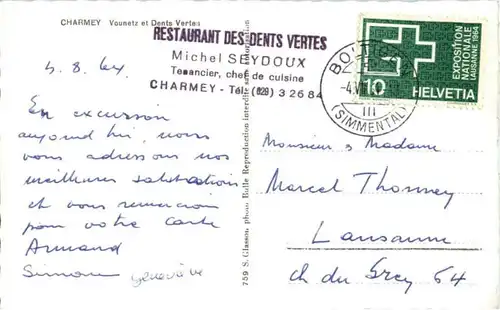 CHARMEY Vounetz et Dents Vertes
RESTAURANT DES DENTS VERTES
Michel SEYDOUX
Tenancier, chef de cuisine
CHARMEY - Tél. (029) 3 26 84
4.8.64
En excursion
aujourd'hui, nous
vous adressons nos
meilleures salutations
et vous remercions
pour votre carte
Armand
Simone Geneviève
759 S. Glasson, photo Bulle Reproduction interdite
BOLTIGEN
-4.VIII
III
(SIMMENTAL)
EXPOSITION
NATIONALE
LAUSANNE 1964
10 HELVETIA
Monsieur & Madame
Marcel Thonney
Lausanne
ch du Grey 64